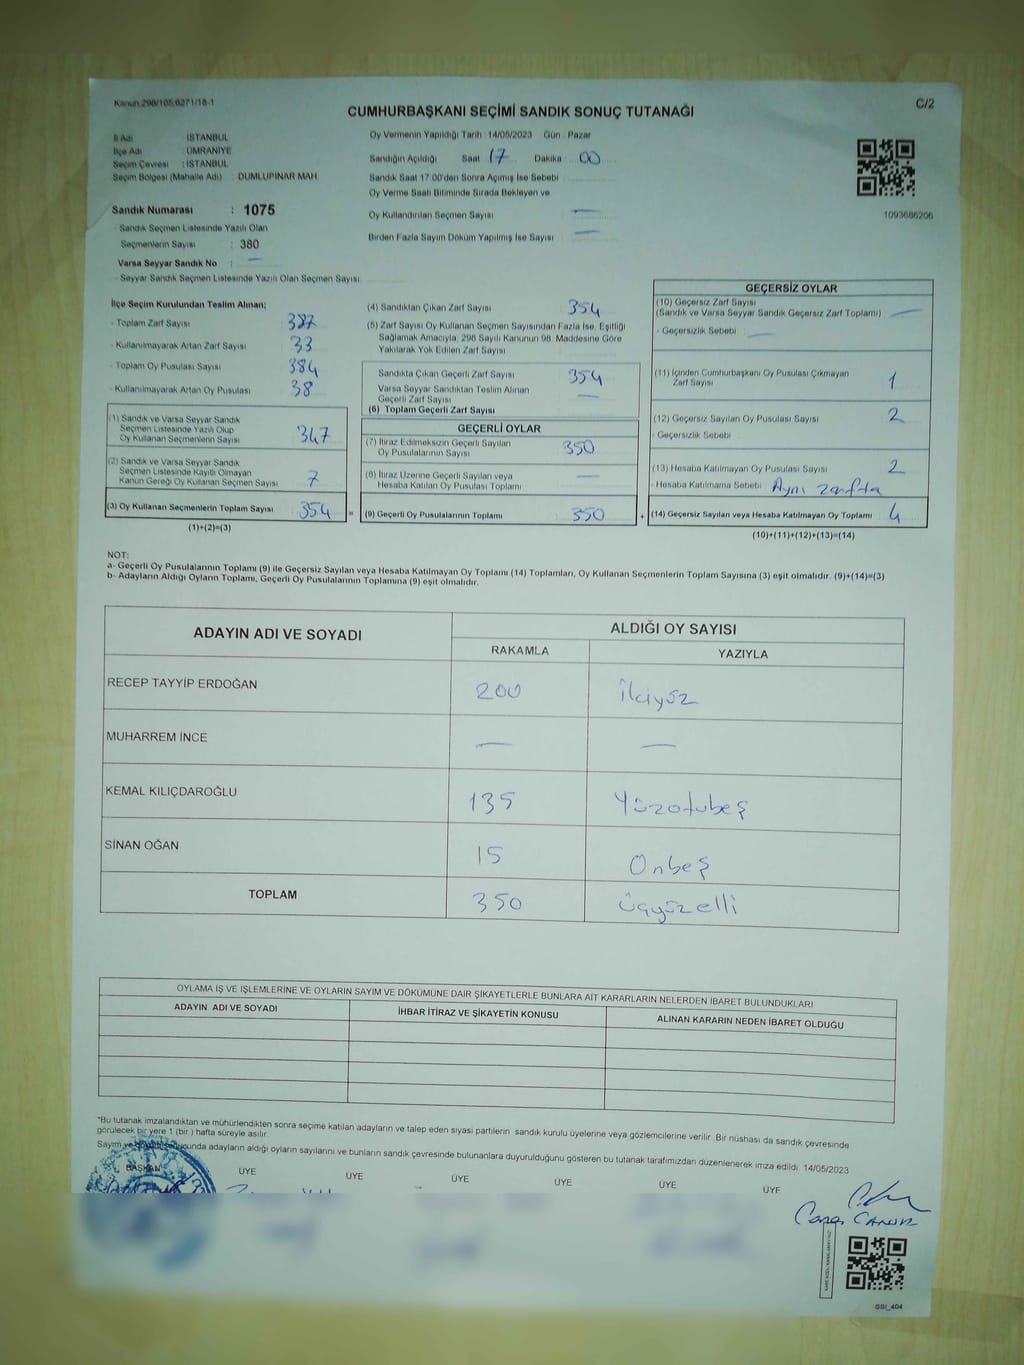 Kanun:298/105,6271/18-1
C/2
CUMHURBAŞKANI SEÇİMİ SANDIK SONUÇ TUTANAĞI
İl Adı : İSTANBUL
İlçe Adı : ÜMRANİYE
Seçim Çevresi : İSTANBUL
Seçim Bölgesi (Mahalle Adı) : DUMLUPINAR MAH.
Oy Vermenin Yapıldığı Tarih :14/05/2023 Gün : Pazar
Sandığın Açıldığı Saat 17 Dakika : 00
Sandık Saat 17:00'den Sonra Açımış İse Sebebi
Oy Verme Saati Bitiminde Sırada Bekleyen ve
Oy Kullandırılan Seçmen Sayısı —
Birden Fazla Sayım Döküm Yapılmış İse Sayısı —
1093686206
Sandık Numarası : 1075
- Sandık Seçmen Listesinde Yazılı Olan
Seçmenlerin Sayısı : 380
Varsa Seyyar Sandık No : —
- Seyyar Sandık Seçmen Listesinde Yazılı Olan Seçmen Sayısı:
İlçe Seçim Kurulundan Teslim Alınan;
- Toplam Zarf Sayısı 387
- Kullanılmayarak Artan Zarf Sayısı 33
- Toplam Oy Pusulası Sayısı 384
- Kullanılmayarak Artan Oy Pusulası 38
(1) Sandık ve Varsa Seyyar Sandık
Seçmen Listesinde Yazılı Olup
Oy Kullanan Seçmenlerin Sayısı 347
(2) Sandık ve Varsa Seyyar Sandık
Seçmen Listesinde Kayıtlı Olmayan
Kanun Gereği Oy Kullanan Seçmen Sayısı 7
(3) Oy Kullanan Seçmenlerin Toplam Sayısı 354
(1)+(2)=(3)
(4) Sandıktan Çıkan Zarf Sayısı 354
(5) Zarf Sayısı Oy Kullanan Seçmen Sayısından Fazla İse, Eşitliği
Sağlamak Amacıyla, 298 Sayılı Kanunun 98. Maddesine Göre
Yakılarak Yok Edilen Zarf Sayısı
Sandıkta Çıkan Geçerli Zarf Sayısı 354
Varsa Seyyar Sandıktan Teslim Alınan
Geçerli Zarf Sayısı —
(6) Toplam Geçerli Zarf Sayısı
GEÇERLİ OYLAR
(7) İtiraz Edilmeksizin Geçerli Sayılan
Oy Pusulalarının Sayısı 350
(8) İtiraz Üzerine Geçerli Sayılan veya
Hesaba Katılan Oy Pusulası Toplamı —
= (9) Geçerli Oy Pusulalarının Toplamı 350 +
GEÇERSİZ OYLAR
(10) Geçersiz Zarf Sayısı
(Sandık ve Varsa Seyyar Sandık Geçersiz Zarf Toplamı) —
- Geçersizlik Sebebi : —
(11) İçinden Cumhurbaşkanı Oy Pusulası Çıkmayan
Zarf Sayısı 1
(12) Geçersiz Sayılan Oy Pusulası Sayısı 2
- Geçersizlik Sebebi
(13) Hesaba Katılmayan Oy Pusulası Sayısı 2
- Hesaba Katılmama Sebebi : Aynı zarfta
(14) Geçersiz Sayılan veya Hesaba Katılmayan Oy Toplamı 4
(10)+(11)+(12)+(13)=(14)
NOT:
a- Geçerli Oy Pusulalarının Toplamı (9) ile Geçersiz Sayılan veya Hesaba Katılmayan Oy Toplamı (14) Toplamları, Oy Kullanan Seçmenlerin Toplam Sayısına (3) eşit olmalıdır. (9)+(14)=(3)
b- Adayların Aldığı Oyların Toplamı, Geçerli Oy Pusulalarının Toplamına (9) eşit olmalıdır.
ADAYIN ADI VE SOYADI ALDIĞI OY SAYISI
RAKAMLA YAZIYLA
RECEP TAYYİP ERDOĞAN 200 İkiyüz
MUHARREM İNCE — —
KEMAL KILIÇDAROĞLU 135 Yüzotubeş
SİNAN OĞAN 15 Onbeş
TOPLAM 350 Üçyüzelli
OYLAMA İŞ VE İŞLEMLERİNE VE OYLARIN SAYIM VE DÖKÜMÜNE DAİR ŞİKAYETLERLE BUNLARA AİT KARARLARIN NELERDEN İBARET BULUNDUKLARI
ADAYIN ADI VE SOYADI İHBAR İTİRAZ VE ŞİKAYETİN KONUSU ALINAN KARARIN NEDEN İBARET OLDUĞU
*Bu tutanak imzalandıktan ve mühürlendikten sonra seçime katılan adayların ve talep eden siyasi partilerin sandık kurulu üyelerine veya gözlemcilerine verilir. Bir nüshası da sandık çevresinde
görülecek bir yere 1 (bir ) hafta süreyle asılır.
Sayım ve sonucunda adayların aldığı oyların sayılarını ve bunların sandık çevresinde bulunanlara duyurulduğunu gösteren bu tutanak tarafımızdan düzenlenerek imza edildi. 14/05/2023
BAŞKAN ÜYE ÜYE ÜYE ÜYE ÜYE ÜYE
SSI_404